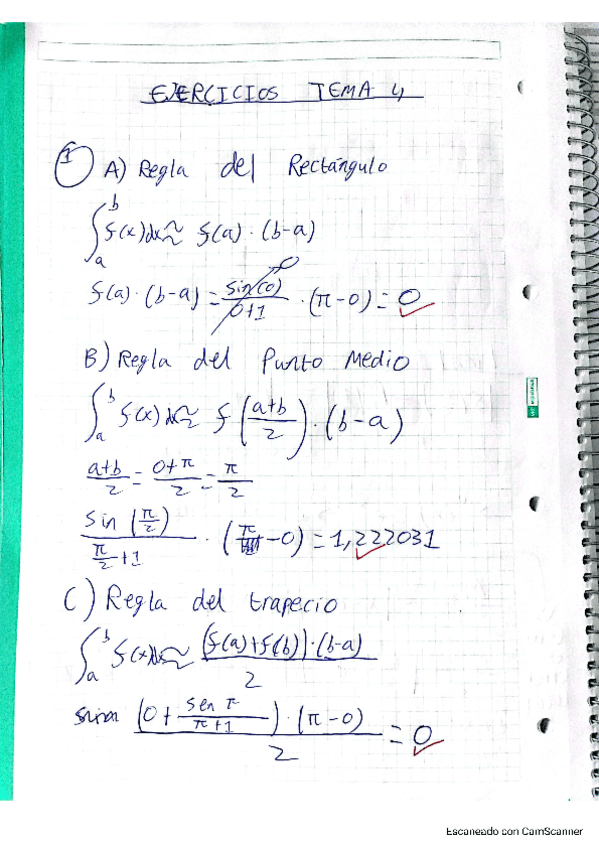 EJERCICIOS TEMA 4
1 A) Regla del Rectángulo
∫_a^b f(x)dx ≈ f(a) · (b-a)
f(a) · (b-a) = sin(0)/0+1 0 · (π-0) = 0
B) Regla del Punto Medio
∫_a^b f(x)dx ≈ f(a+b/2) · (b-a)
a+b/2 = 0+π/2 = π/2
sin(π/2)/(π/2+1) · (π-0) = 1,222031
C) Regla del trapecio
∫_a^b f(x)dx ≈ (f(a)+f(b))·(b-a)/2
(0 + sen π/π+1) · (π-0)/2 = 0
Escaneado con CamScanner